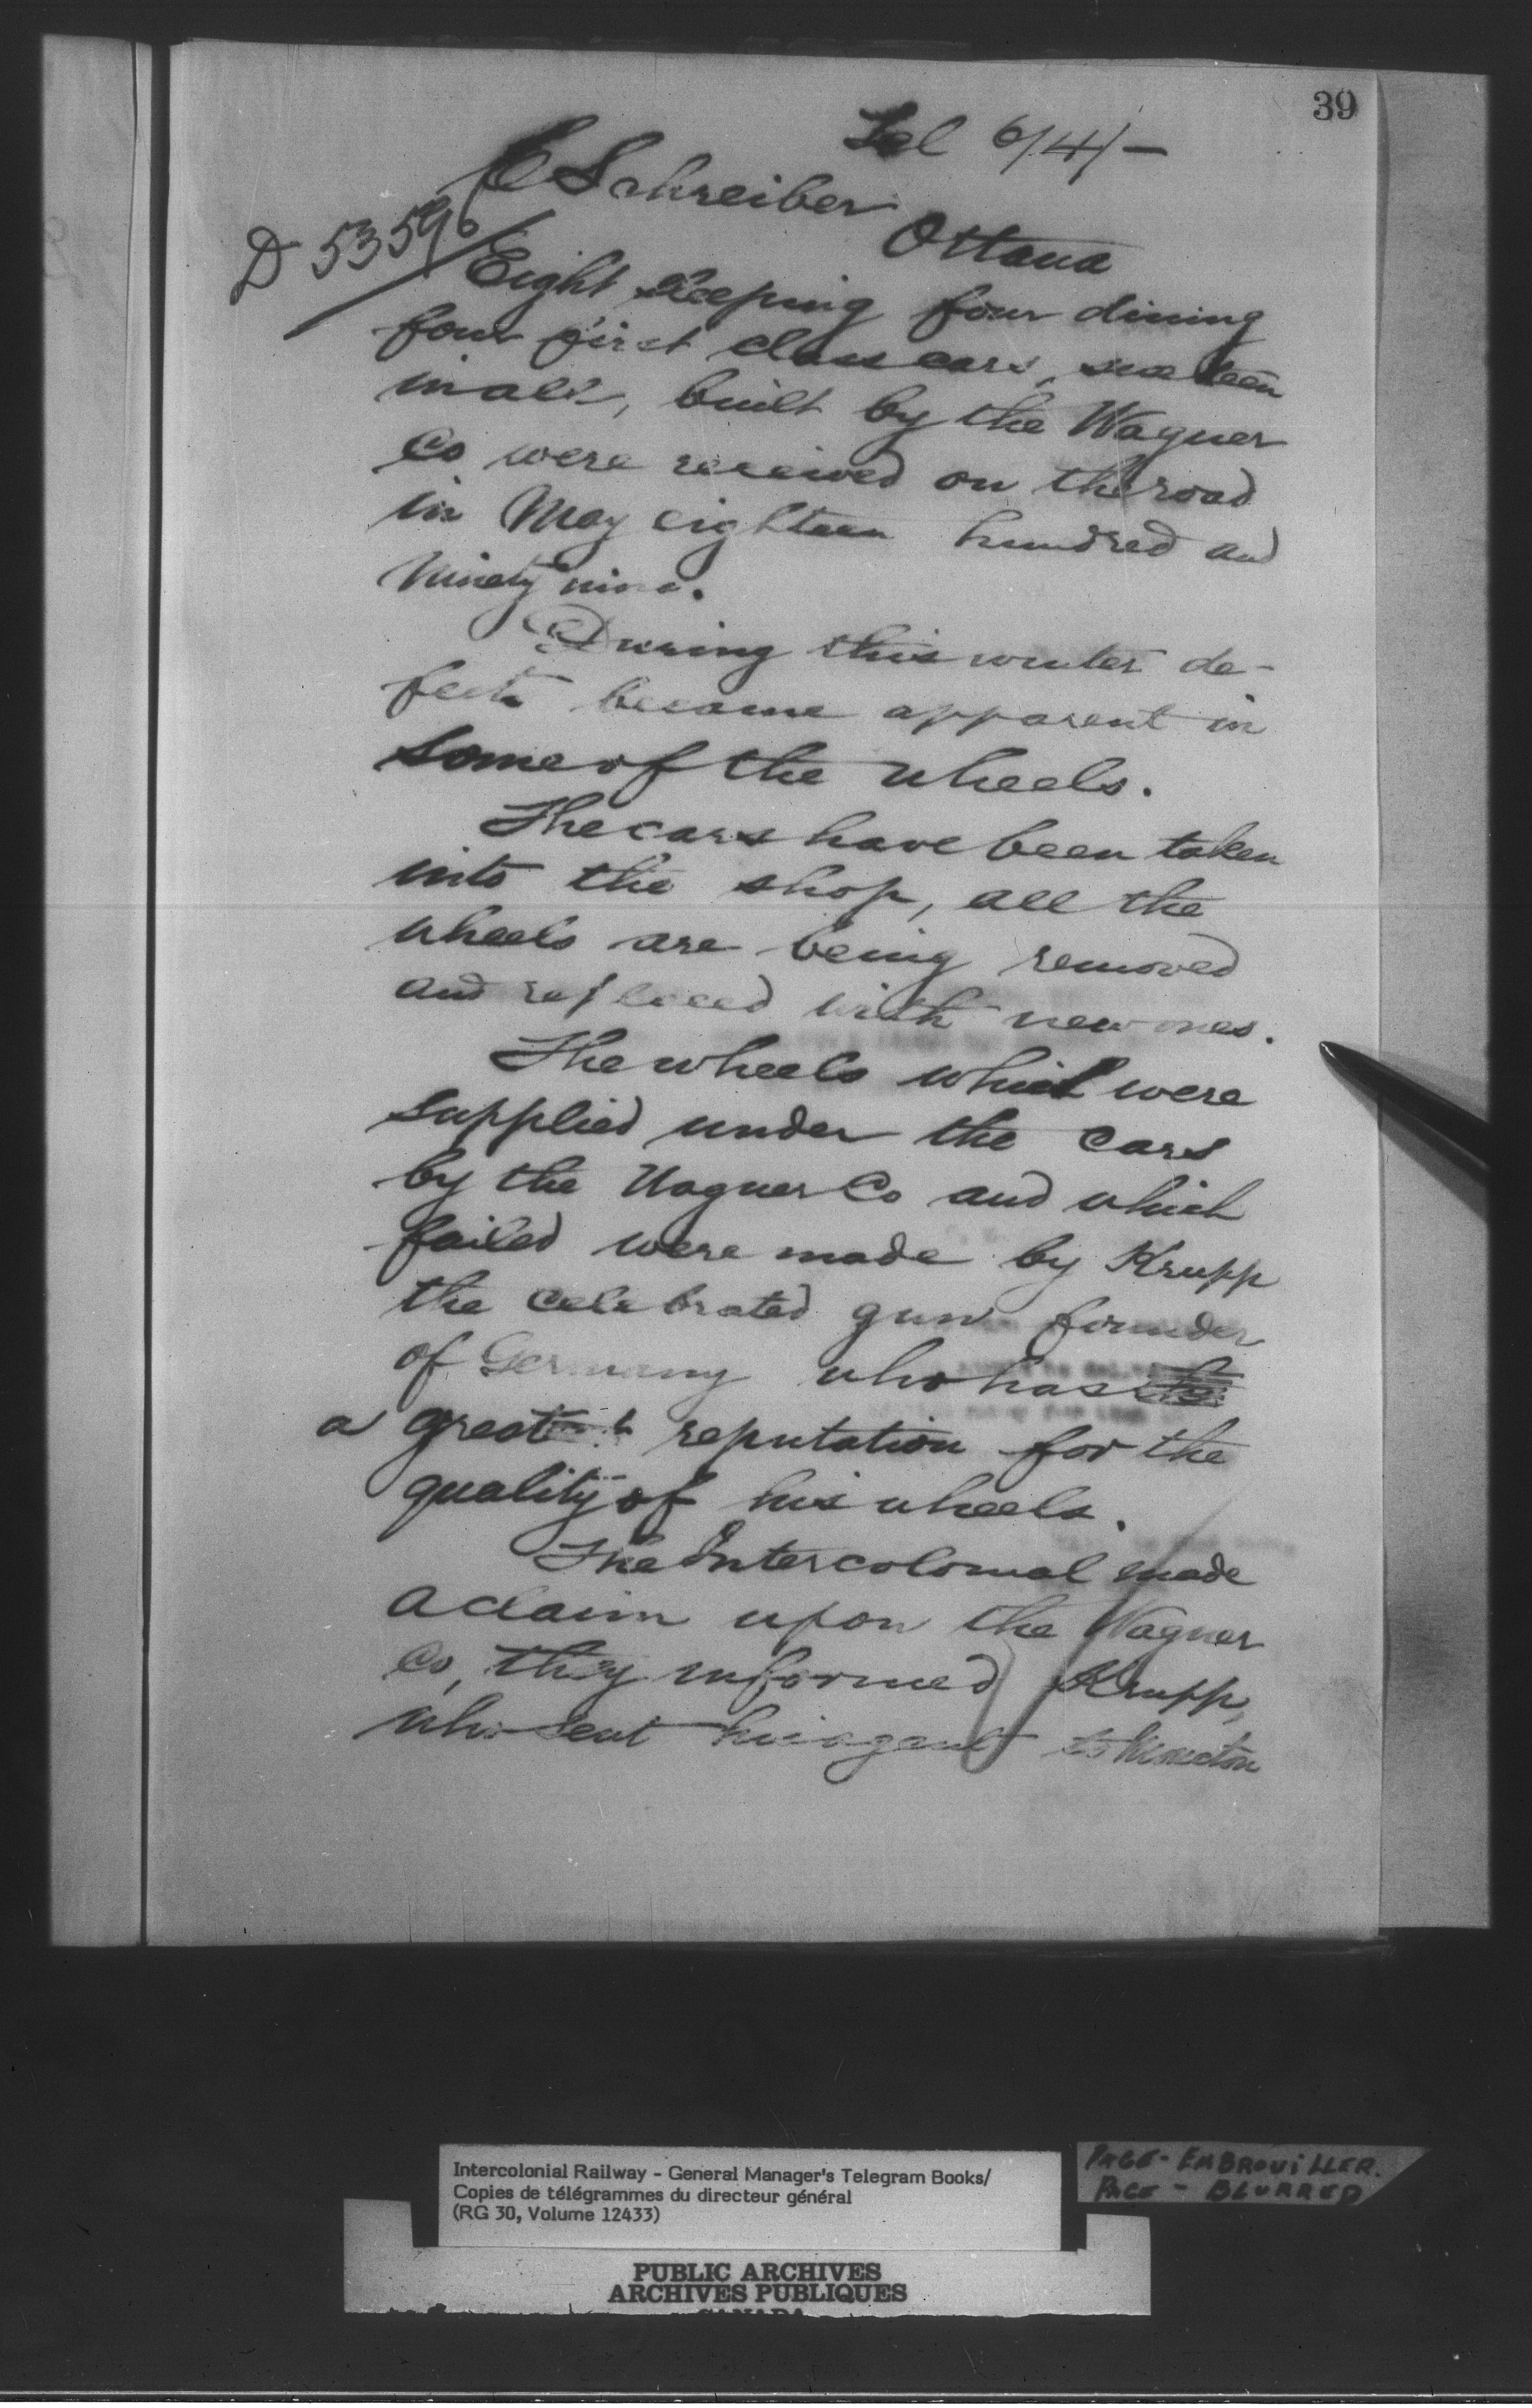 39
Tel 6/4/-
C Schreiber
Ottawa
D 53596
Eight sleeping four dining
four first class cars, sixteen
in all, built by the Wagner
Co were received on the road
in May eighteen hundred and
Ninety nine.
During this winter de-
fects became apparent in
some of the wheels.
The cars have been taken
into the shop, all the
wheels are being removed
and replaced with new ones.
The wheels which were
supplied under the cars
by the Wagner Co and which
failed were made by Krupp
the celebrated gun founder
of Germany who has the
a great reputation for the
quality of his wheels.
The Intercolonial made
a claim upon the Wagner
Co, they informed Krupp,
who sent his agent to Moncton
Intercolonial Railway - General Manager's Telegram Books/
Copies de télégrammes du directeur général
(RG 30, Volume 12433)
PAGE - EMBROUILLER.
PAGE - BLURRED
PUBLIC ARCHIVES
ARCHIVES PUBLIQUES
CANADA